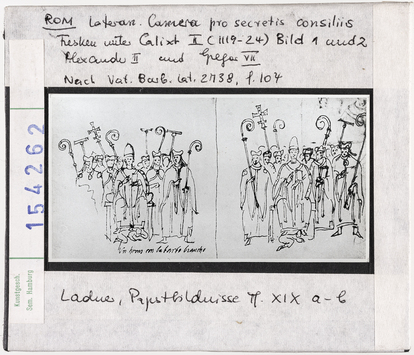 ROM Lateran. Camera pro secretis consiliis
Fresken unter Calixt II (1119-24) Bild 1 und 2
Alexander II und Gregor VII
Nach Vat. Barb. lat. 2738, f. 104
154262
Kunstgesch.
Sem. Hamburg
Ladner, Papstbildnisse Tf. XIX a-b